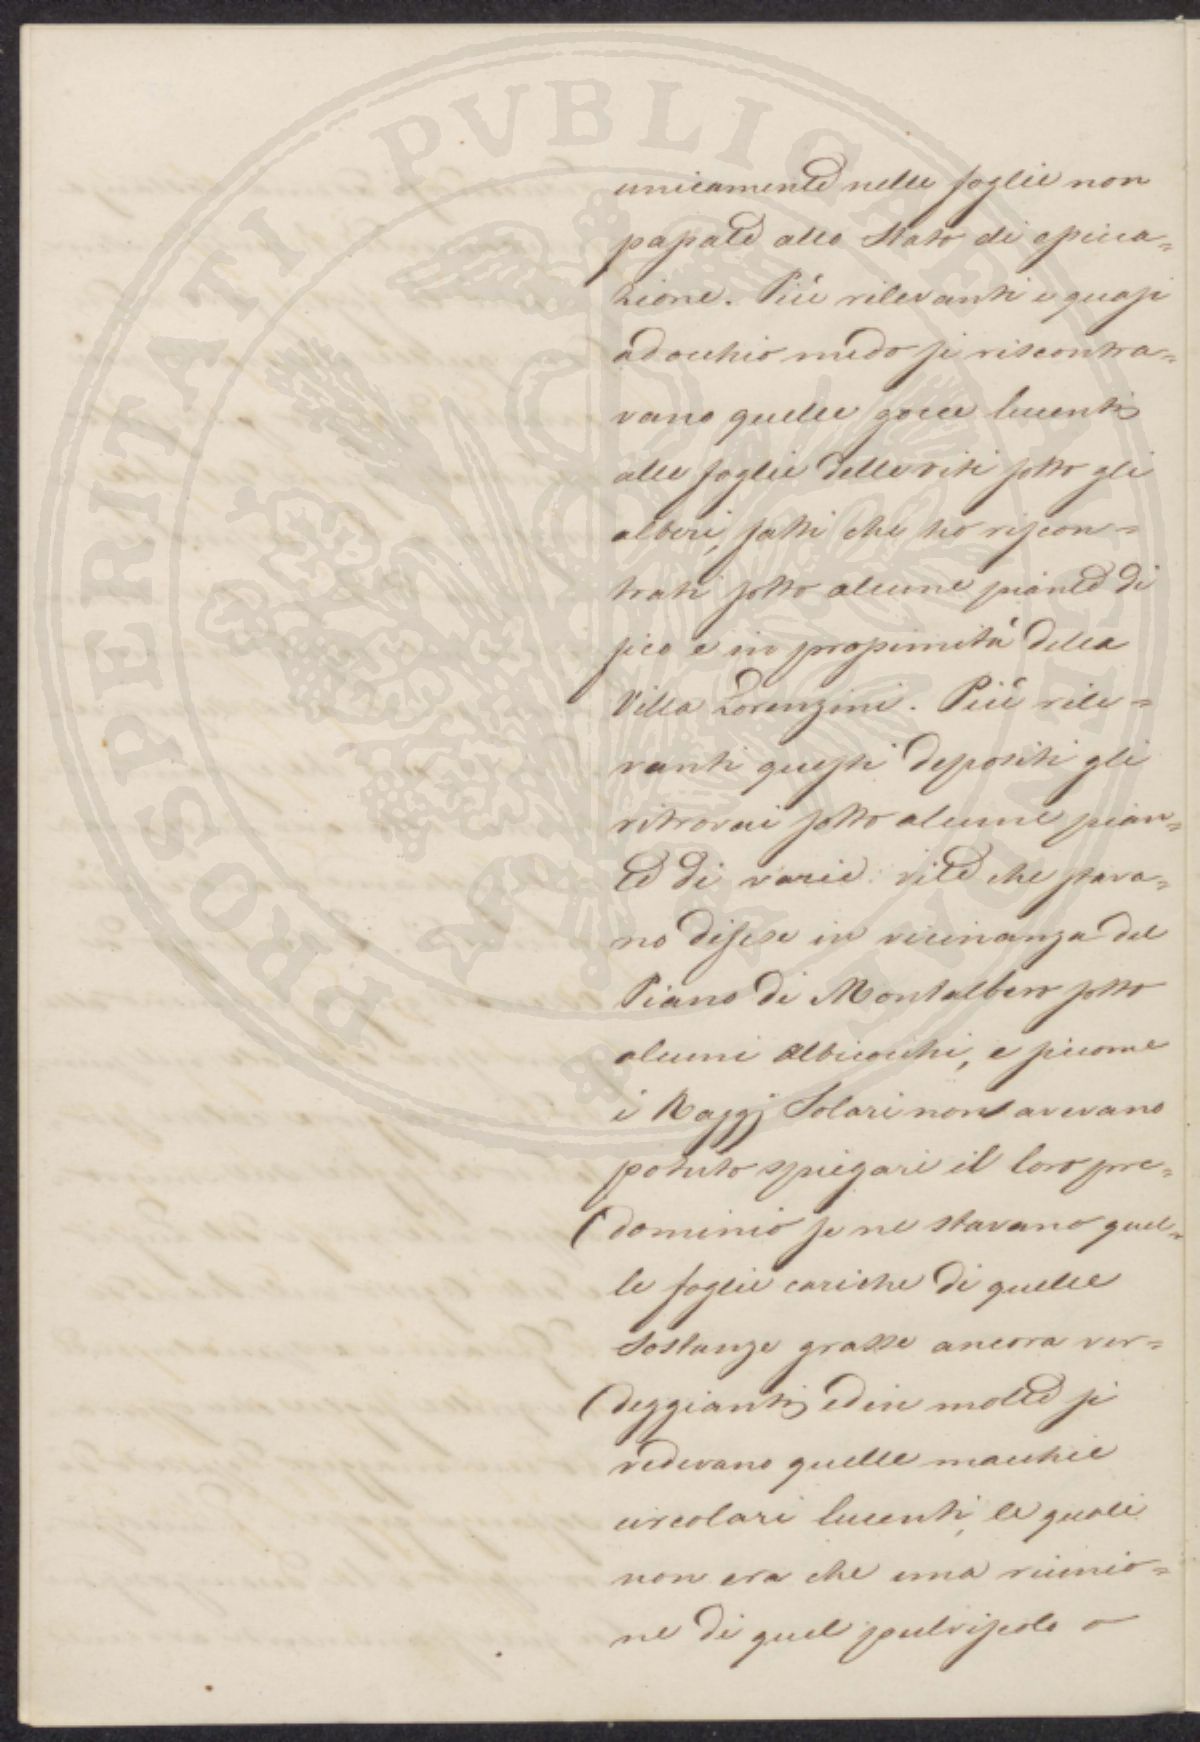 unicamente nelle foglie non
passate allo Stato di essicca=
zione. Più rilevanti e quasi
ad occhio nudo si riscontra=
vano quelle gocce lucenti
alle foglie delle viti sotto gli
alberi, fatti che ho riscon=
trati sotto alcune piante di
fico e in prossimità della
Villa Lorenzini. Più rile=
vanti questi depositi gli
ritrovai sotto alcune pian=
te di varie vite che stava=
no distese in vicinanza del
Piano di Montalbero sotto
alcuni Albicocchi, e siccome
i Raggj Solari non avevano
potuto spiegare il loro pre=
dominio se ne stavano quel=
le foglie cariche di quelle
Sostanze grasse ancora ver=
deggianti, ed in molte si
vedevano quelle macchie
circolari lucenti, le quali
non era che una riunio=
ne di quel pulviscolo o
PROSPERITATI PVBLICAE AVGENDAE